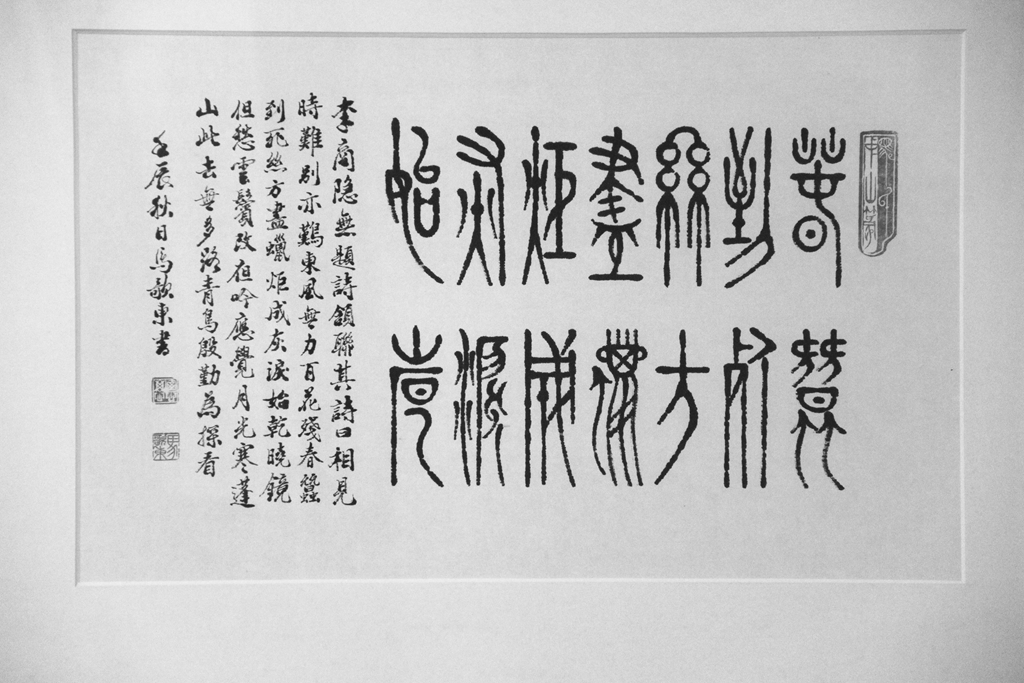 中山篆
春蠶
到死
絲方
盡蠟
炬成
灰淚
始乾
李商隐無題詩頷聯其詩曰相見
時難别亦難東風無力百花殘春蠶
到死絲方盡蠟炬成灰淚始乾曉鏡
但愁雲鬢改夜吟應覺月光寒蓬
山此去無多路青鳥殷勤為探看
壬辰秋日馬歌東書